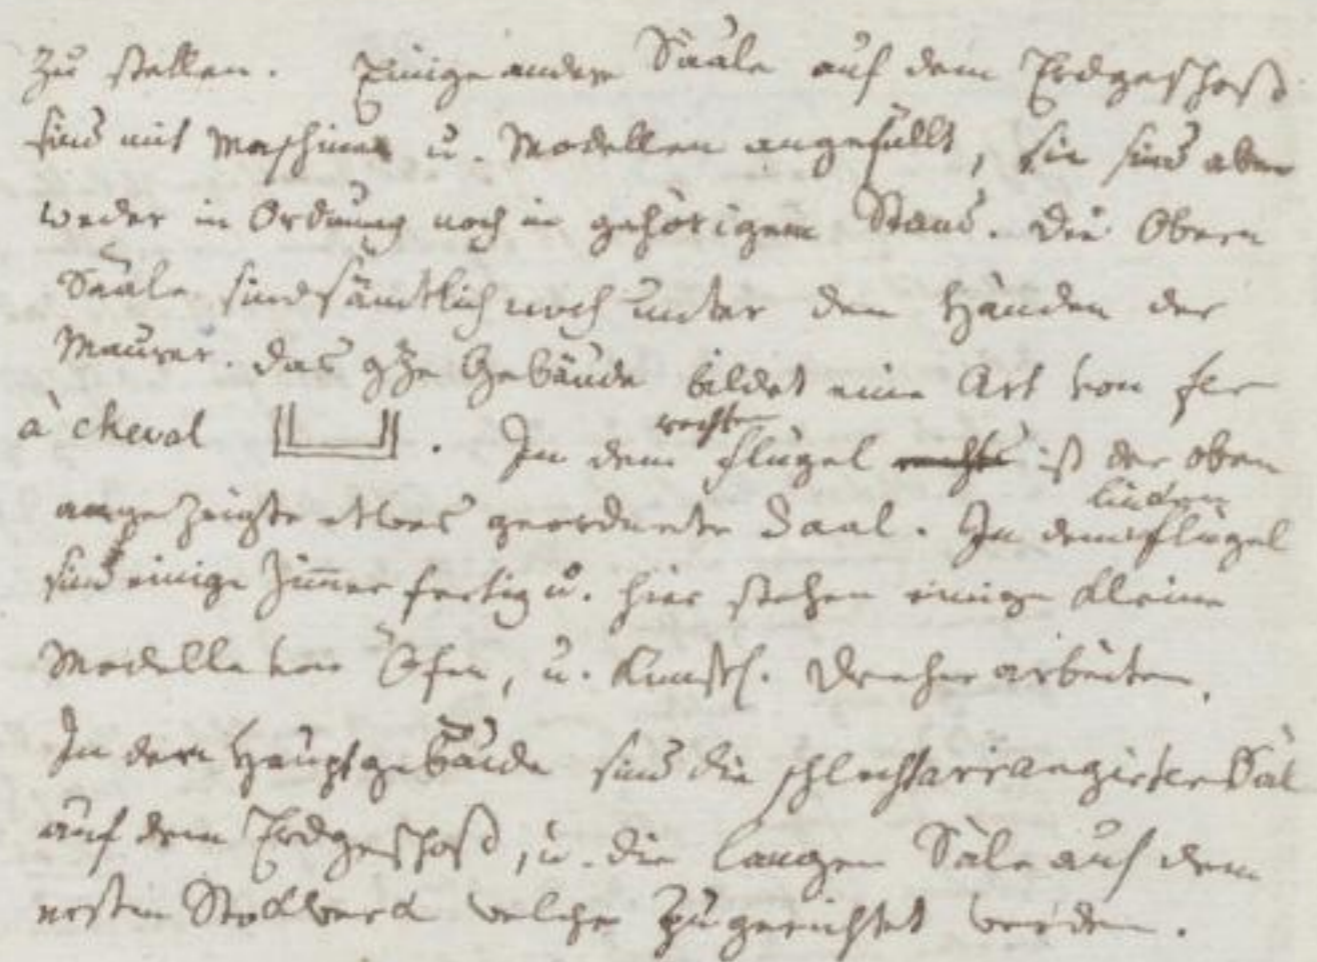 zu stellen. Einige andere Sääle auf dem Erdgeschoß
sind mit Maschinen u. Modellen angefüllt, sie sind aber
weder in Ordnung noch in gehörigem Stand. Die Obern
Sääle sind sämtlich noch unter den Händen der
Maurer. Das gze Gebäude bildet eine Art von fer
à cheval . In dem rechten Flügel rechts ist der oben
angezeigte etwas geordnete Saal. In dem linken Flügel
sind einige Zimmer fertig u. hier stehen einige kleine
Modelle von Öfen, u. Kunstl. Dreher arbeiten.
In dem Hauptgebäude sind die schlecht arrangirten Säl
auf dem Erdgeschoß, u. die langen Säle auf dem
ersten Stockwerk welche zugerichtet werden.